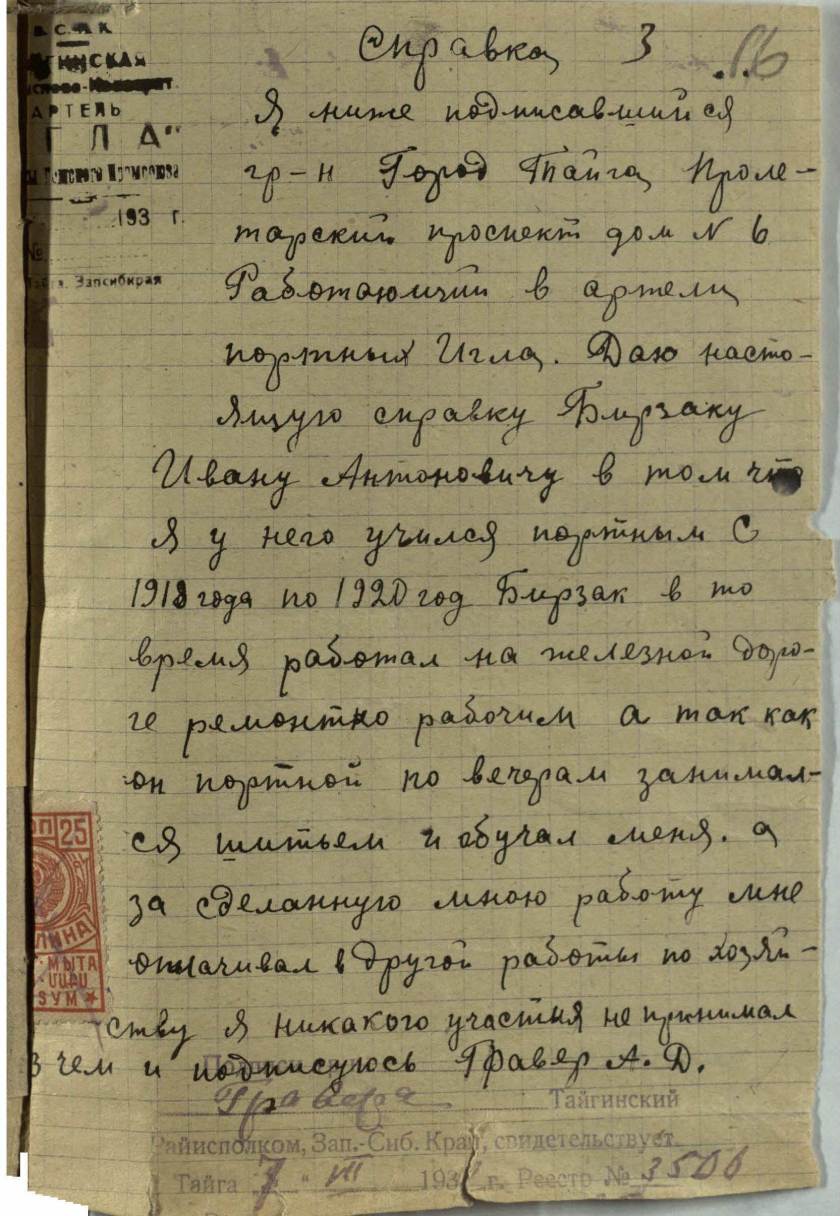 В.С.Н.Х
АРТЕЛЬ
ГЛА"
193 г.
№
Запсибкрая
Справка 3
Я ниже подписавшийся
гр-н Город Тайга Проле-
тарский проспект дом N 6
Работающий в артели
портных Игла. Даю насто-
ящую справку Бирзаку
Ивану Антоновичу в том что
я у него учился портным С
1918 года по 1920 год Бирзак в то
время работал на железной доро-
ге ремонтно рабочим а так как
он портной по вечерам занимал-
ся шитьем и обучал меня. а
за сделанную мною работу мне
оплачивал в другой работы по хозяй-
ству я никакого участия не принимал
В чем и подписуюсь Гравер А. Д.
25
МЫТА
Гравера Тайгинский
Райисполком, Зап.-Сиб. Края, свидетельствует.
Тайга 7 " VII 193 г. Реестр № 3506